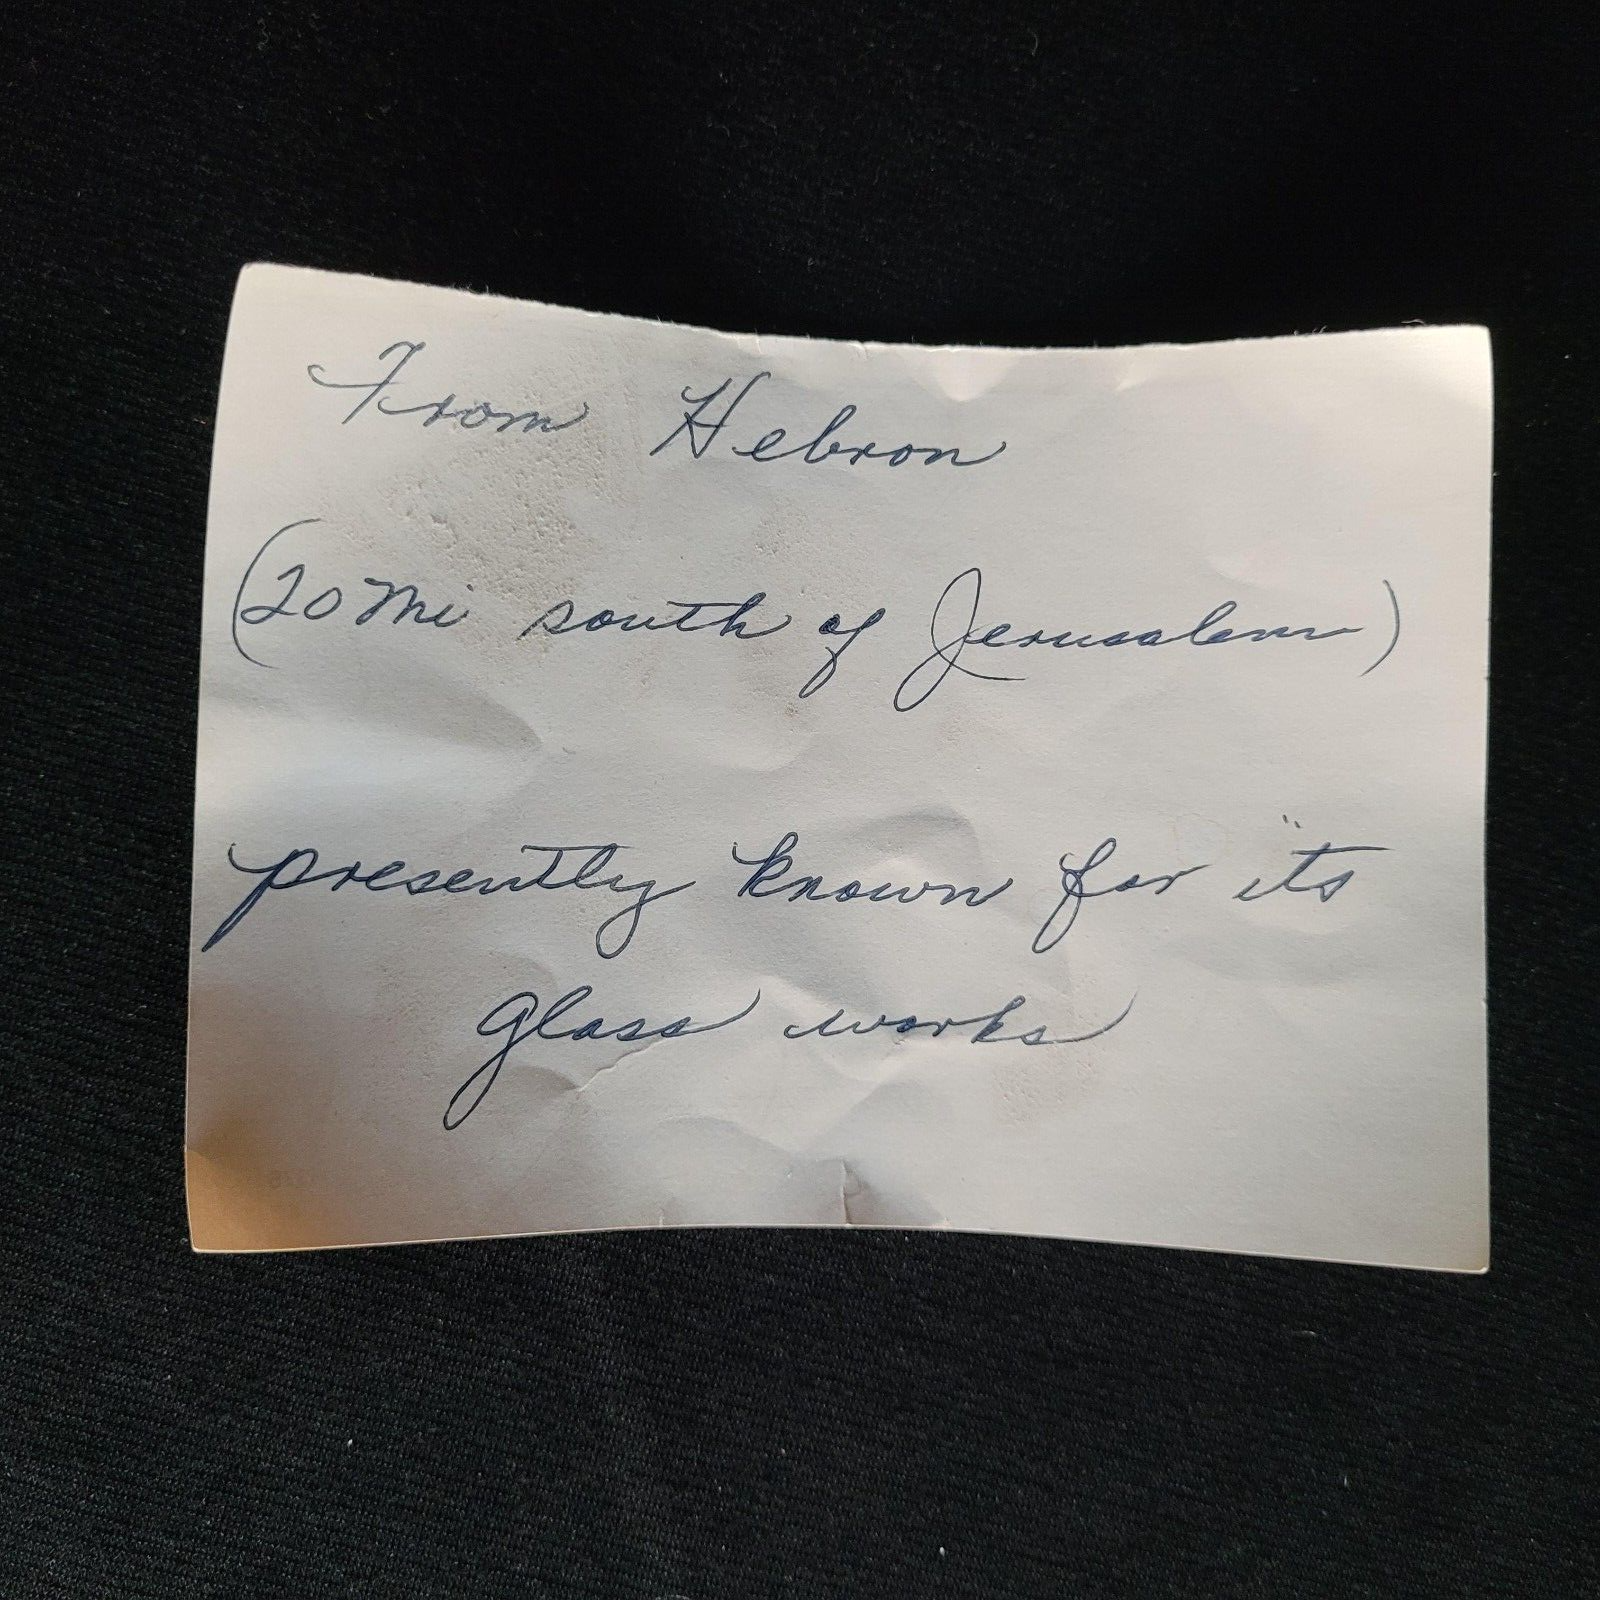 From Hebron
(20 Mi south of Jerusalem)
presently known for its
glass works